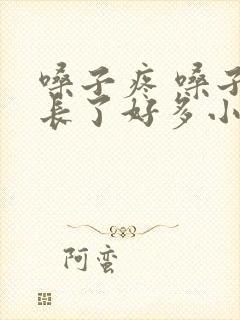 嗓子疼 嗓子
长了好多小
阿蛮